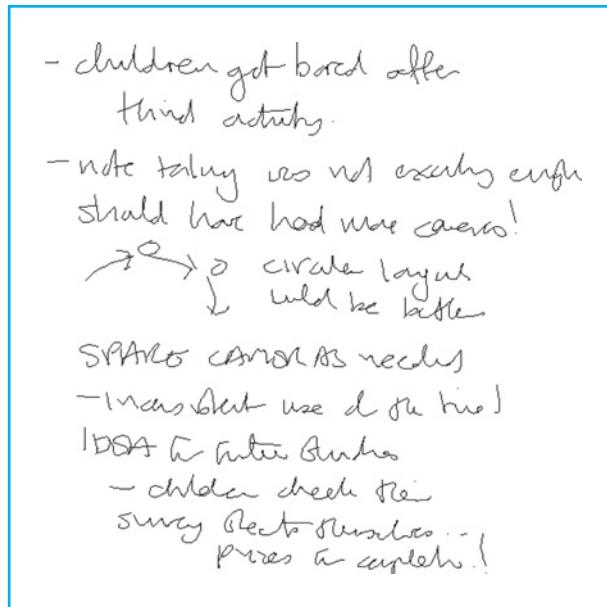 - children got bored after
third activity.
- note taking was not exciting enough
should have had more cameras!
circular layout
would be better
SPARE CAMERAS needed
- Inconsistent use of the time!
IDEA for future studies
- children check their
survey sheets themselves...
prizes for completion!